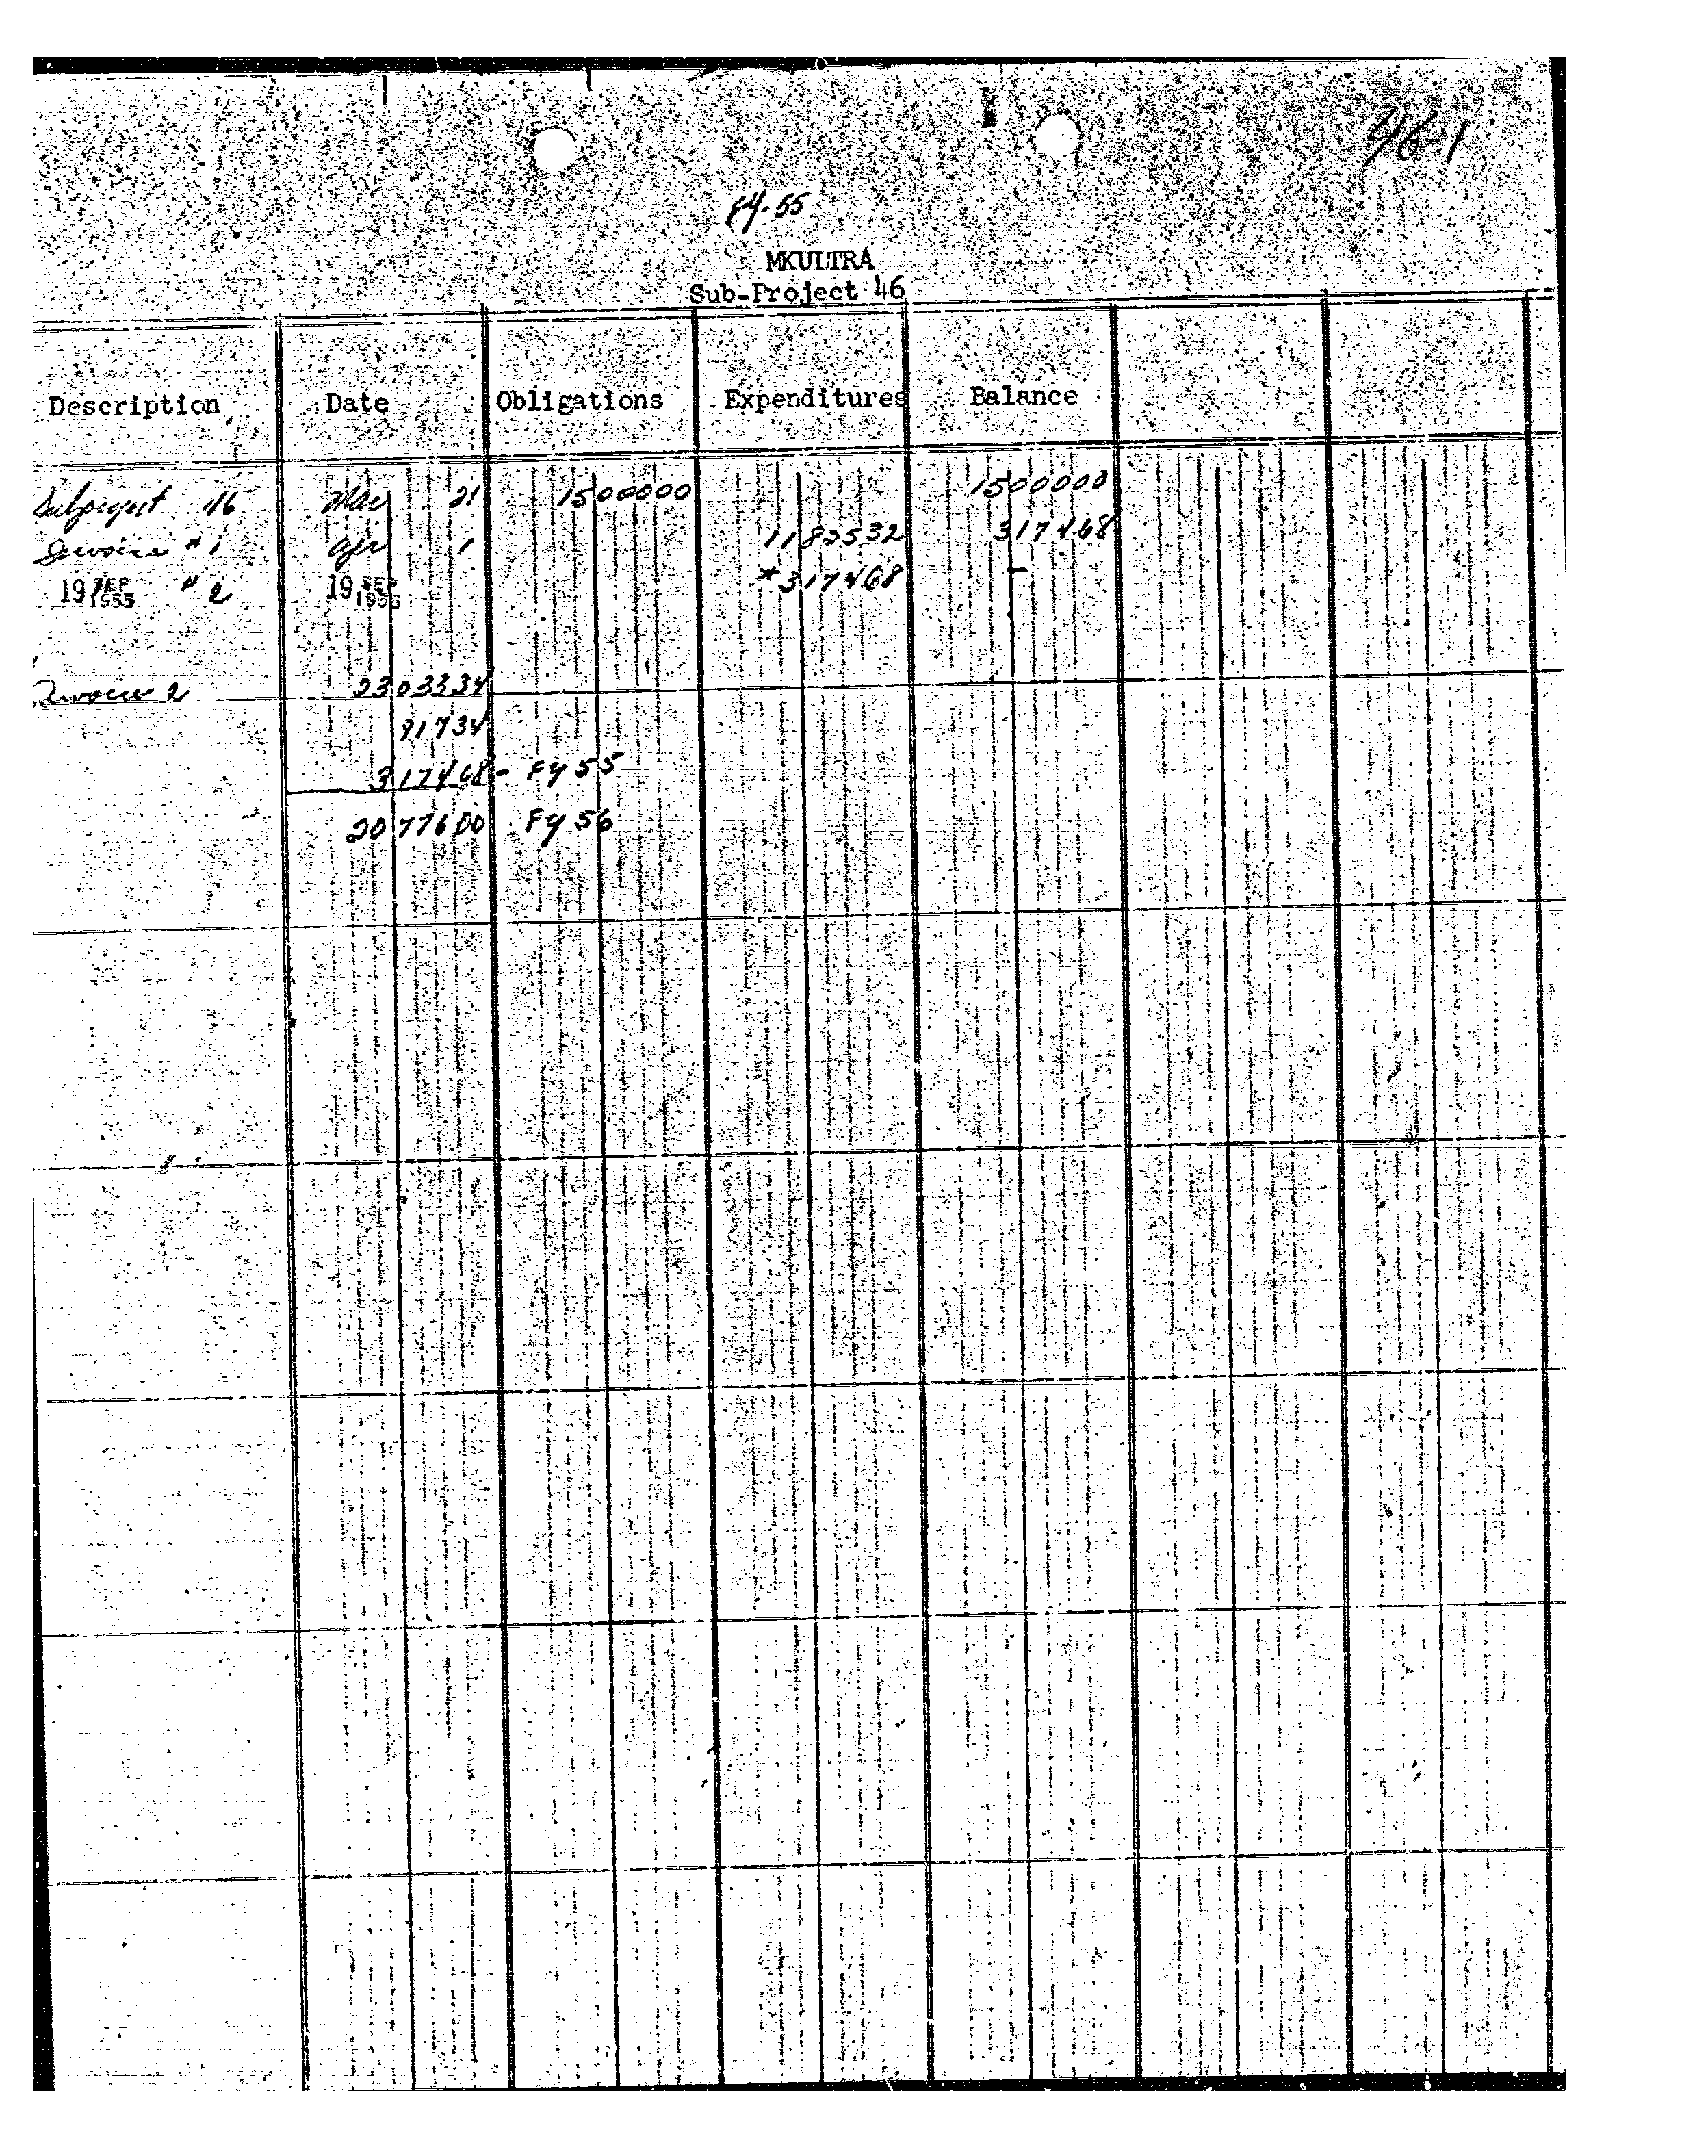 46-1
FY-55
MKULTRA
Sub-Project 46
Description Date Obligations Expenditures Balance
Subproject 46 Mar 21 1500000 1500000
Invoice #1 Apr 1 1182532 317468
19 SEP 1955 " 2 19 SEP 1955 *317468 –
Invoice 2 2303334
91734
317468 - FY 55
2077600 FY 56